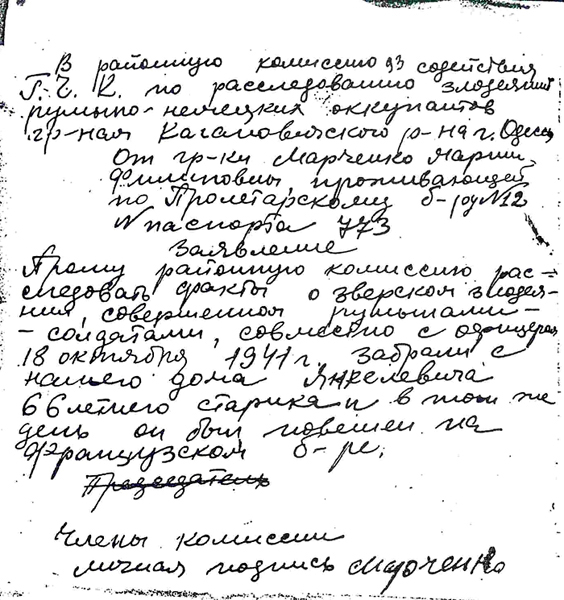 В районную комиссию 93 содействия
Г. Ч. К. по расследованию злодеяний
румыно-немецких оккупантов
гр-нам Кагановичского р-на г. Одессы
От гр-ки Марченко Марии
Филиповны проживающей
по Пролетарскому б-ру №12
№ паспорта 773
Заявление
Прошу районную комиссию рас-
следовать факты о зверском злодея-
нии, совершенном румынами-
- солдатами, совместно с офицерам
18 октября 1941 г. забрали с
нашего дома Янкелевича
66 летнего старика и в тот же
день он был повешен на
Французском б-ре.
Председатель
Члены комиссии
личная подпись Марченко